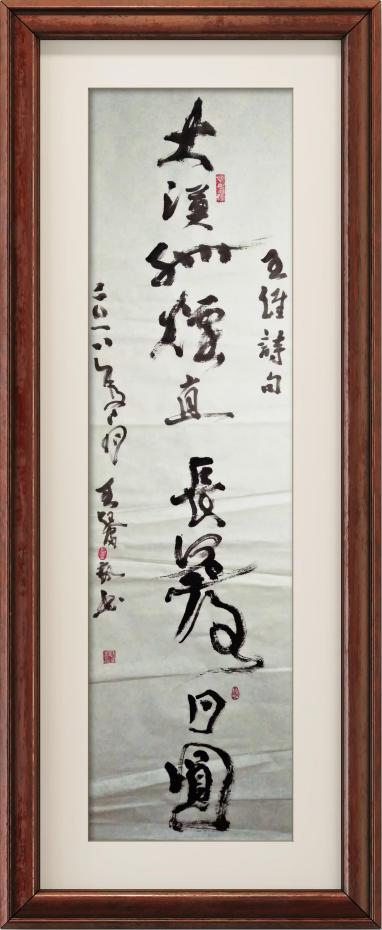 王維詩句
大漠孤煙直長河落日圓
二〇一八年